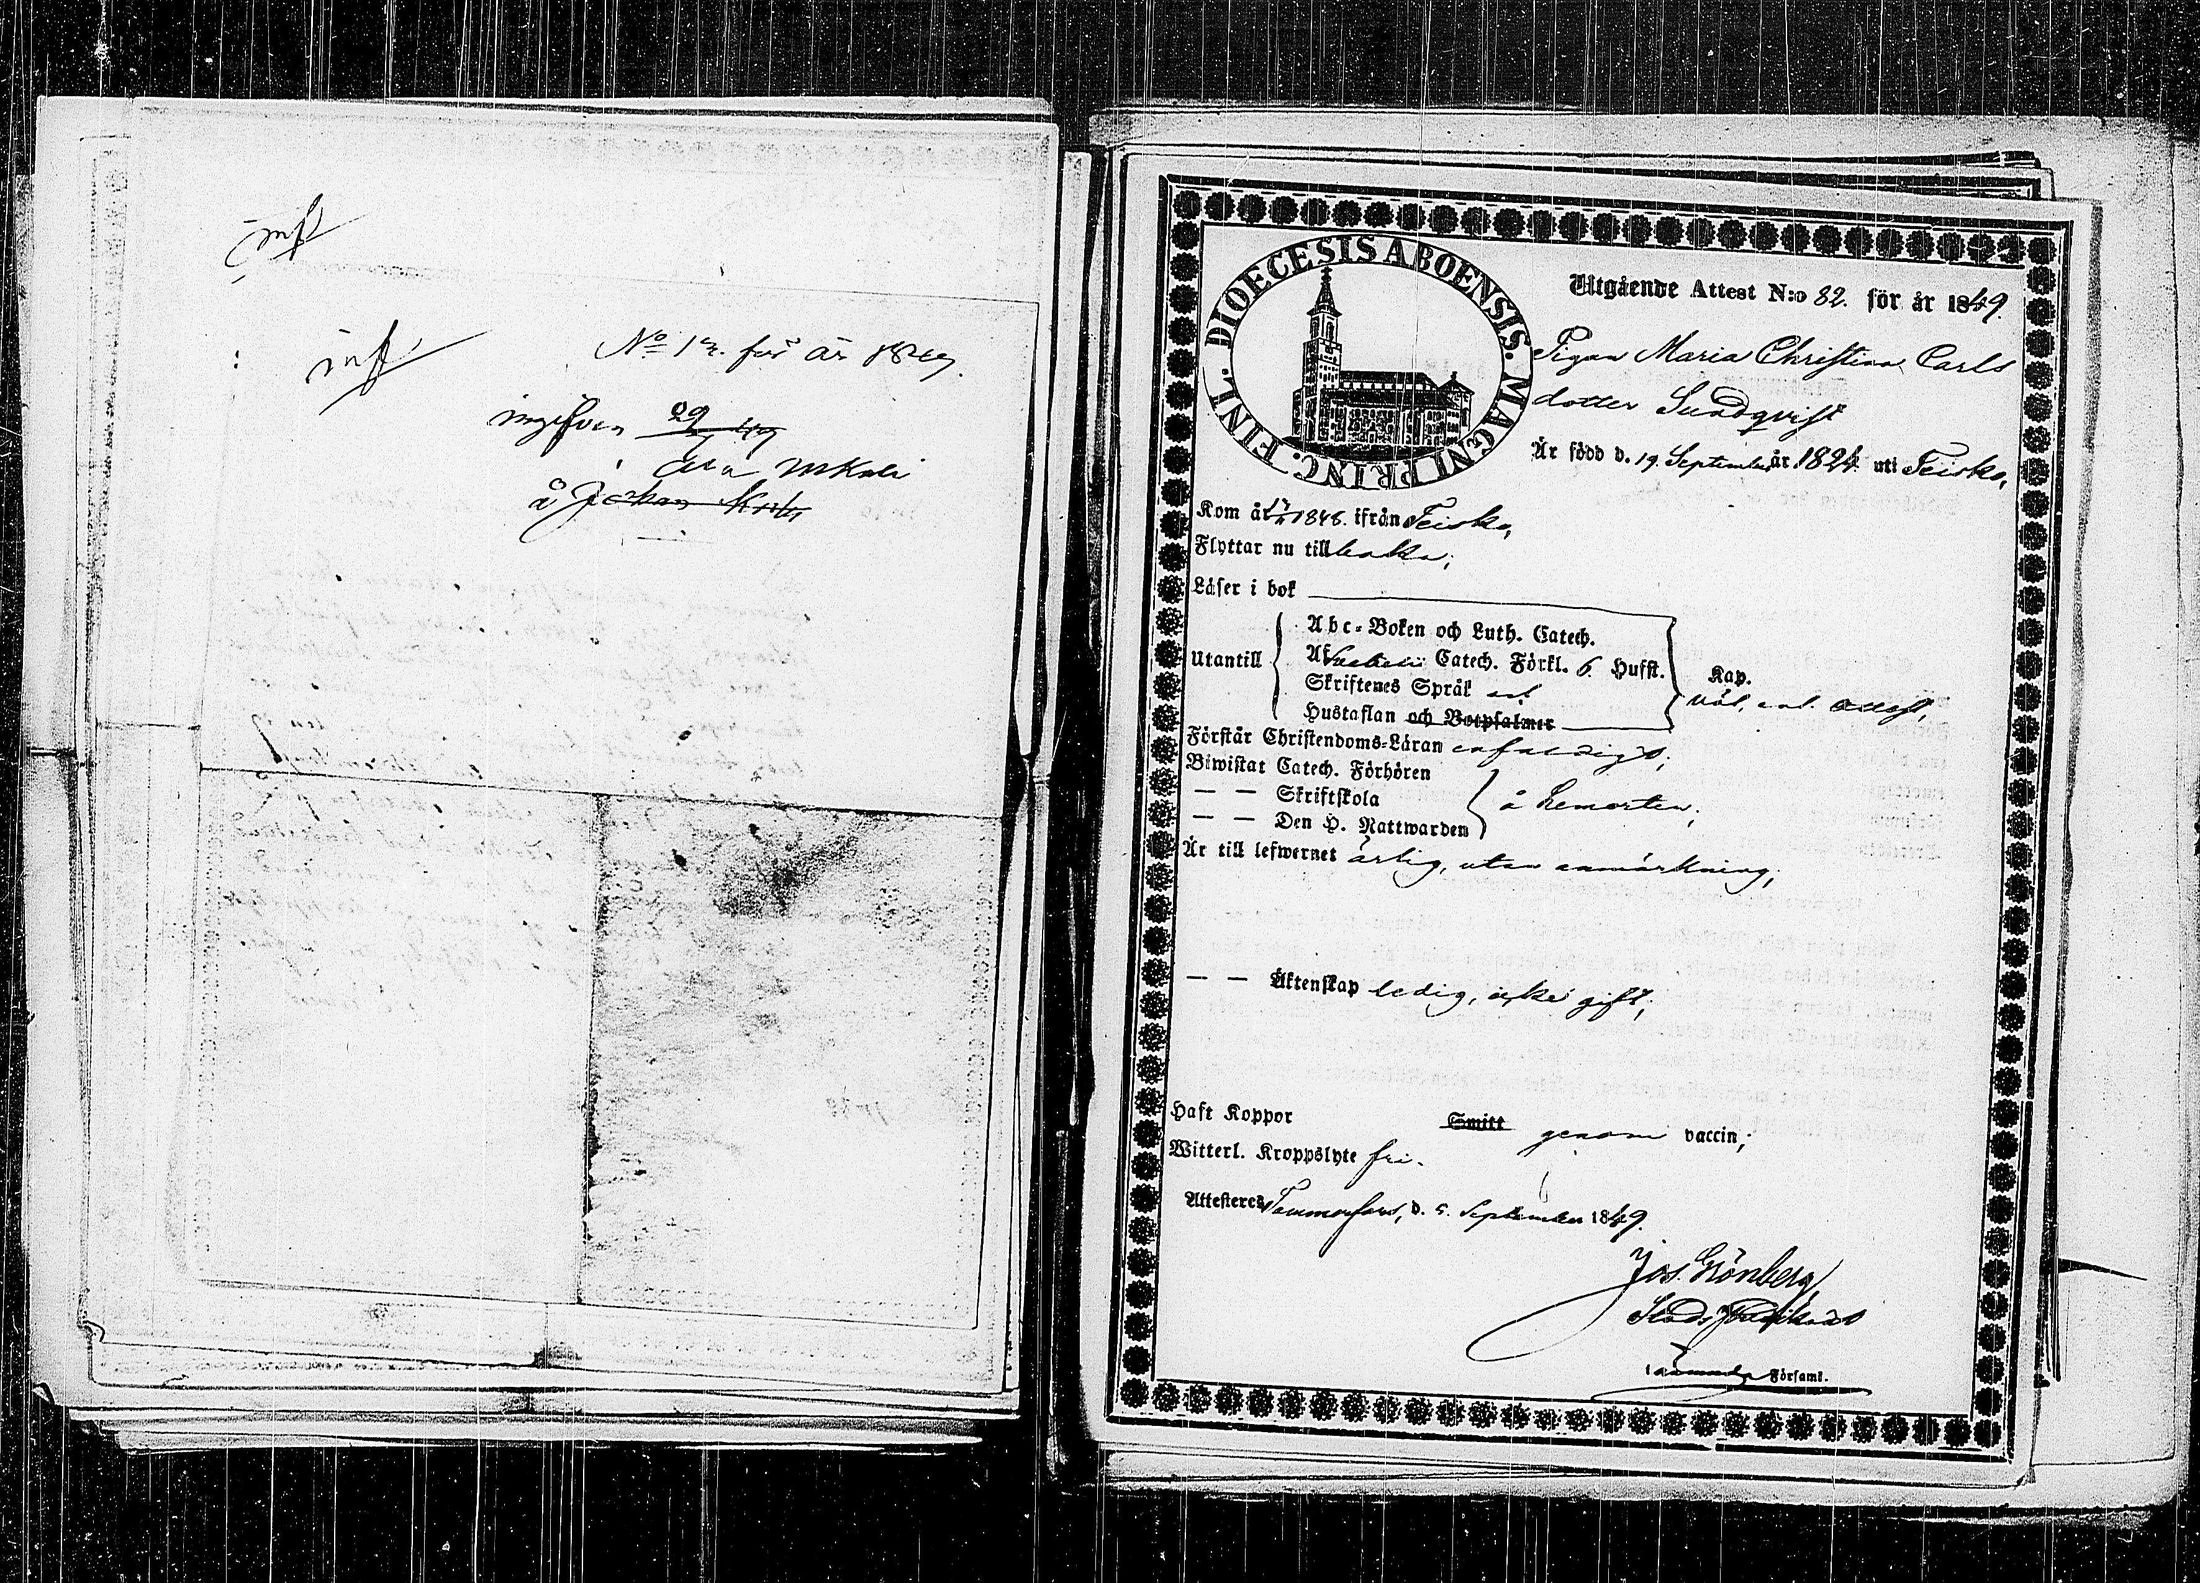 inf
inf
No 12. för år 1849.
ingifven 29
å
DIOECESIS ABOENSIS. MAGNI PRINC. FINL.
Utgående Attest N:o 82. för år 1849.
Pigan Maria Christina Carls
dotter Sundqvist
Är född d. 19 September år 1824 uti Teisko,
Kom år 1848. ifrån Teisko,
Flyttar nu tillbaka;
Läser i bok
Utantill
Abc-Boken och Luth. Catech.
Af Svebelii Catech. Förkl. 6 Hufst.
Skriftenes Språk
Hustaflan och Botpsalmer
Kap.
väl, enl. attest,
Förstår Christendoms-Läran enfaldigt;
Biwistat Catech. Förhören
— — Skriftskola
— — Den H. Nattwarden
å hemorten;
Är till lefwernet ärlig, utan anmärkning;
— — Äktenskap ledig, icke gift;
Haft Koppor Smitt genom vaccin;
Witterl. Kroppslyte fri.
Attesteres Tammerfors, d. 5 September 1849.
Jos. Grönberg
Församl.